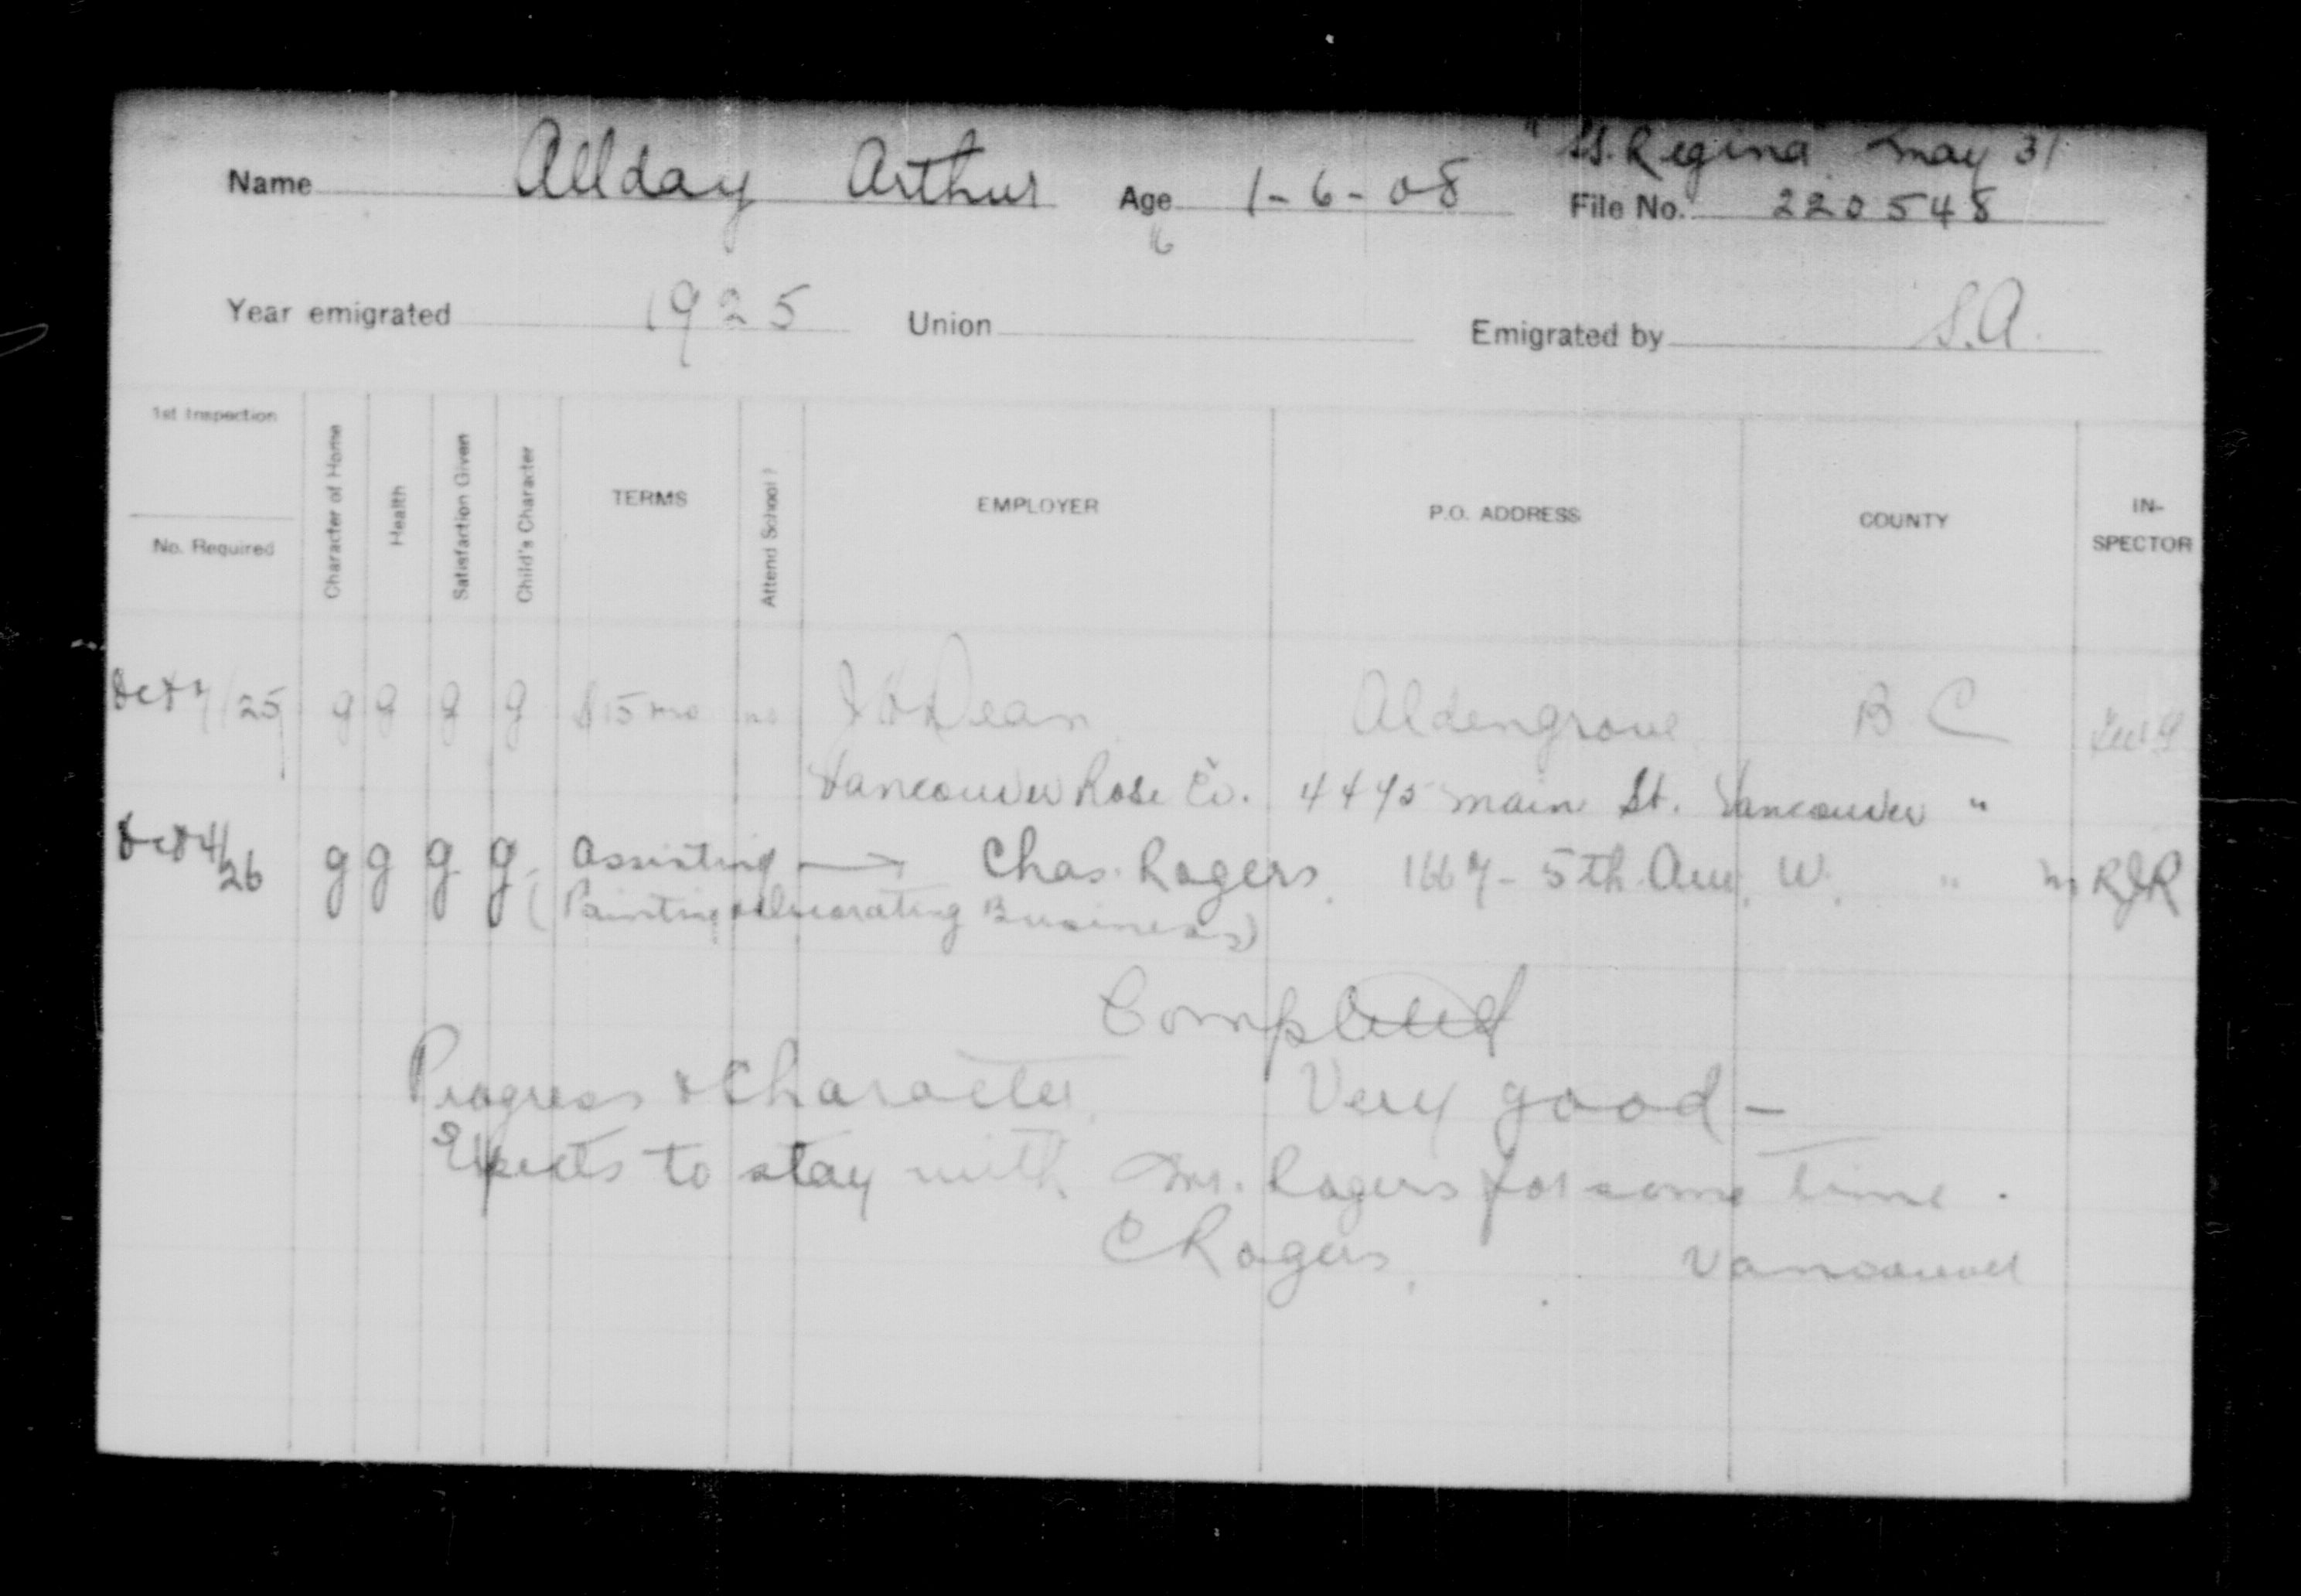 "S.S. Regina" May 31
Name Allday Arthur Age 1-6-08 File No. 220548
16
Year emigrated 1925 Union Emigrated by S.A.
1st Inspection
No. Required
Character of Home
Health
Satisfaction Given
Child's Character
TERMS
Attend School?
EMPLOYER
P.O. ADDRESS
COUNTY
IN-
SPECTOR
/25 g g g g $15 mo no Dean Aldengrove B C
Vancouver Rose Co. 4445 Main St. Vancouver "
Oct 4/26 g g g g Assisting → Chas. Rogers. 1667 - 5th Ave. W. " RJR
(Painting & decorating Business)
Completed
Progress & Character. Very good -
Expects to stay with Mr. Rogers for some time.
C Rogers. Vancouver